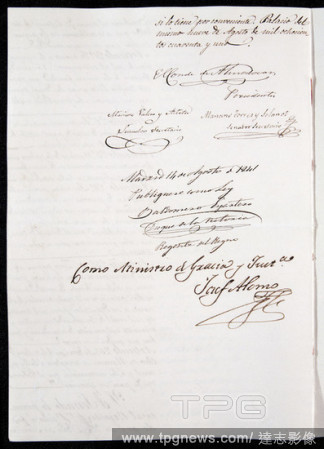 si lo tiene por conveniente. Palacio del
mismo nueve de Agosto de mil ochocien
tos cuarenta y uno
El Conde de Almodovar
Presidente
Senador Secretario
Senador Secretario
Madrid 14 de Agosto de 1841
Publiquese como Ley
Baldomero Espartero
Duque de la Victoria
Regente del Reyno
Como Ministro d Gracia y Just.ª
José Alonso
TPG
www.tpgnews.com/ 達志影像